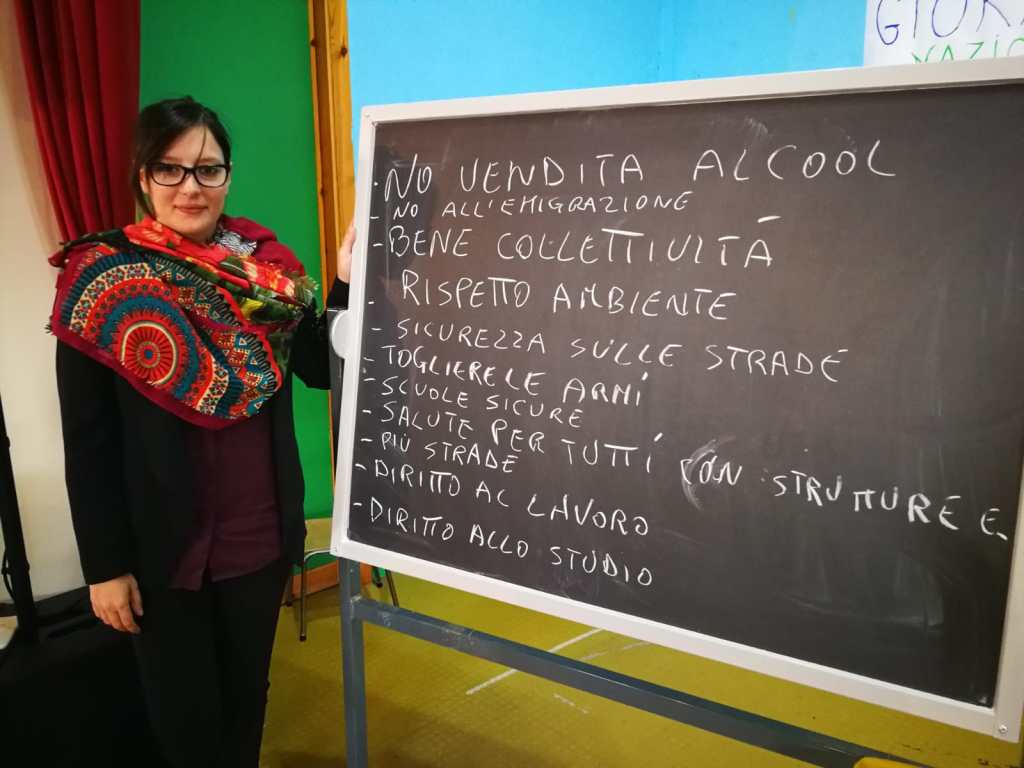 GIOR
NAZIO
- NO VENDITA ALCOOL
- NO ALL'EMIGRAZIONE
- BENE COLLETTIVITÀ
- RISPETTO AMBIENTE
- SICUREZZA SULLE STRADE
- TOGLIERE LE ARMI
- SCUOLE SICURE
- SALUTE PER TUTTI CON STRUTTURE E
- PIÙ STRADE
- DIRITTO AL LAVORO
- DIRITTO ALLO STUDIO